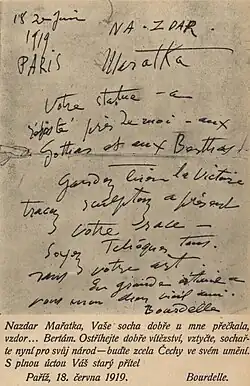 18 Juin
1919
PARIS
NA-ZDAR.
Maratka
Votre statue - a
résisté près de moi - aux
Gothas et aux Berthas!
Gardez bien la Victoire
tracez sculptez à présent
votre race -
Soyez Tchèques tous.
dans votre art.
En grande estime a
vous mon vieil ami.
Bourdelle
Nazdar Mařatka, Vaše socha dobře u mne přečkala,
vzdor... Bertám. Ostříhejte dobře vítězství, vztyčte, sochař-
te nyní pro svůj národ—buďte zcela Čechy ve svém umění.
S plnou úctou Váš starý přítel
Paříž, 18. června 1919. Bourdelle.